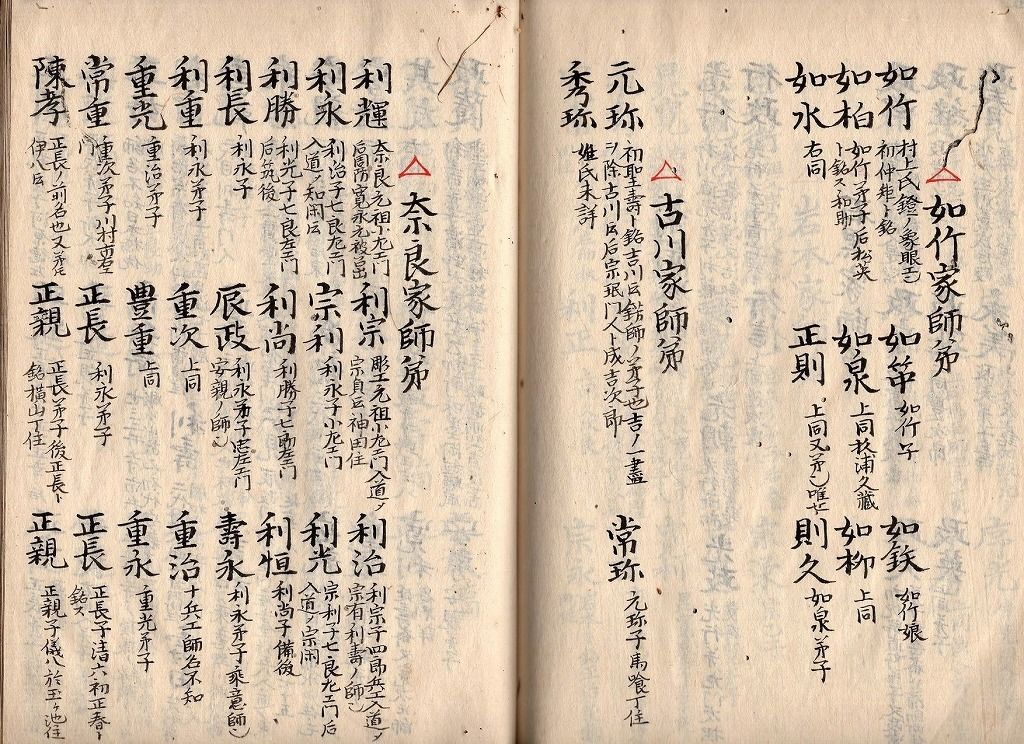 △如竹家師弟
如竹 村上氏鐙ノ象眼言
初仲矩ト銘
如竹弟子后松英
ト銘ス和助
如柏
如水 右同
如笻 如竹子
如泉 上同杉浦久蔵
正則 上同又弟 唯
如鉄 如竹娘
如柳 上同
則久 如泉弟子
△古川家師弟
元珎 初聖壽ト銘吉川云銘師ノ弟子也吉ノ一畫
ヲ除古川云后宗珉門人ト成吉次郎
秀珎 姓氏未詳
常珎 元珎子馬喰丁住
△奈良家師弟
利輝 奈良元祖小左エ門
后周防寛永元
利宗 彫工元祖小左エ門入道ノ
宗貞云神田住
利治 利宗子四郎兵エ入道ノ
宗有利壽ノ師
利永 利治子七良左エ門
入道ノ知閑云
宗利 利永子小左エ門
利光 宗利子七良左エ門后
入道ノ宗閑
利勝 利光子七良左エ門
后筑後
利尚 利勝子七助左エ門
利恒 利尚子備後
利長 利永子
辰政 利永弟子忠左エ門
安親ノ師
壽永 利永弟子乘意師
利重 利永弟子
重次 上同
重治 十兵エ師名不知
重光 重治弟子
豊重 上同
重永 重光弟子
常重 重次弟子川村
門
正長 利永弟子
正長 正長子清六初正春ト
銘ス
陳孝 正長ノ前名也又弟
伊八云
正親 正長弟子後正長ト
銘横山丁住
正親 正親子儀八於玉ヶ池住